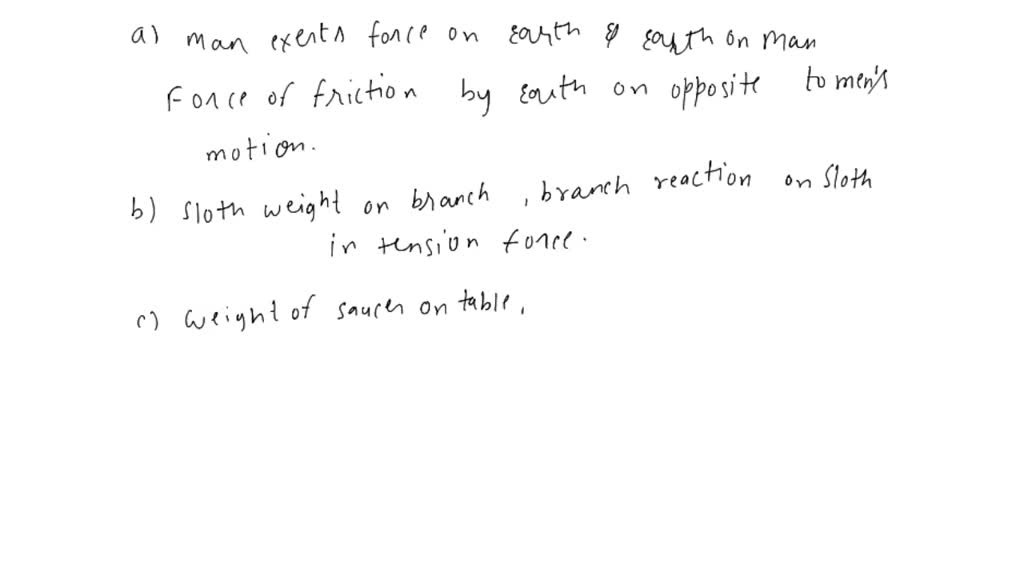 a) man exerts force on earth & earth on man
Force of friction by earth on opposite to men's
motion.
b) sloth weight on branch, branch reaction on sloth
in tension force.
c) weight of saucer on table,